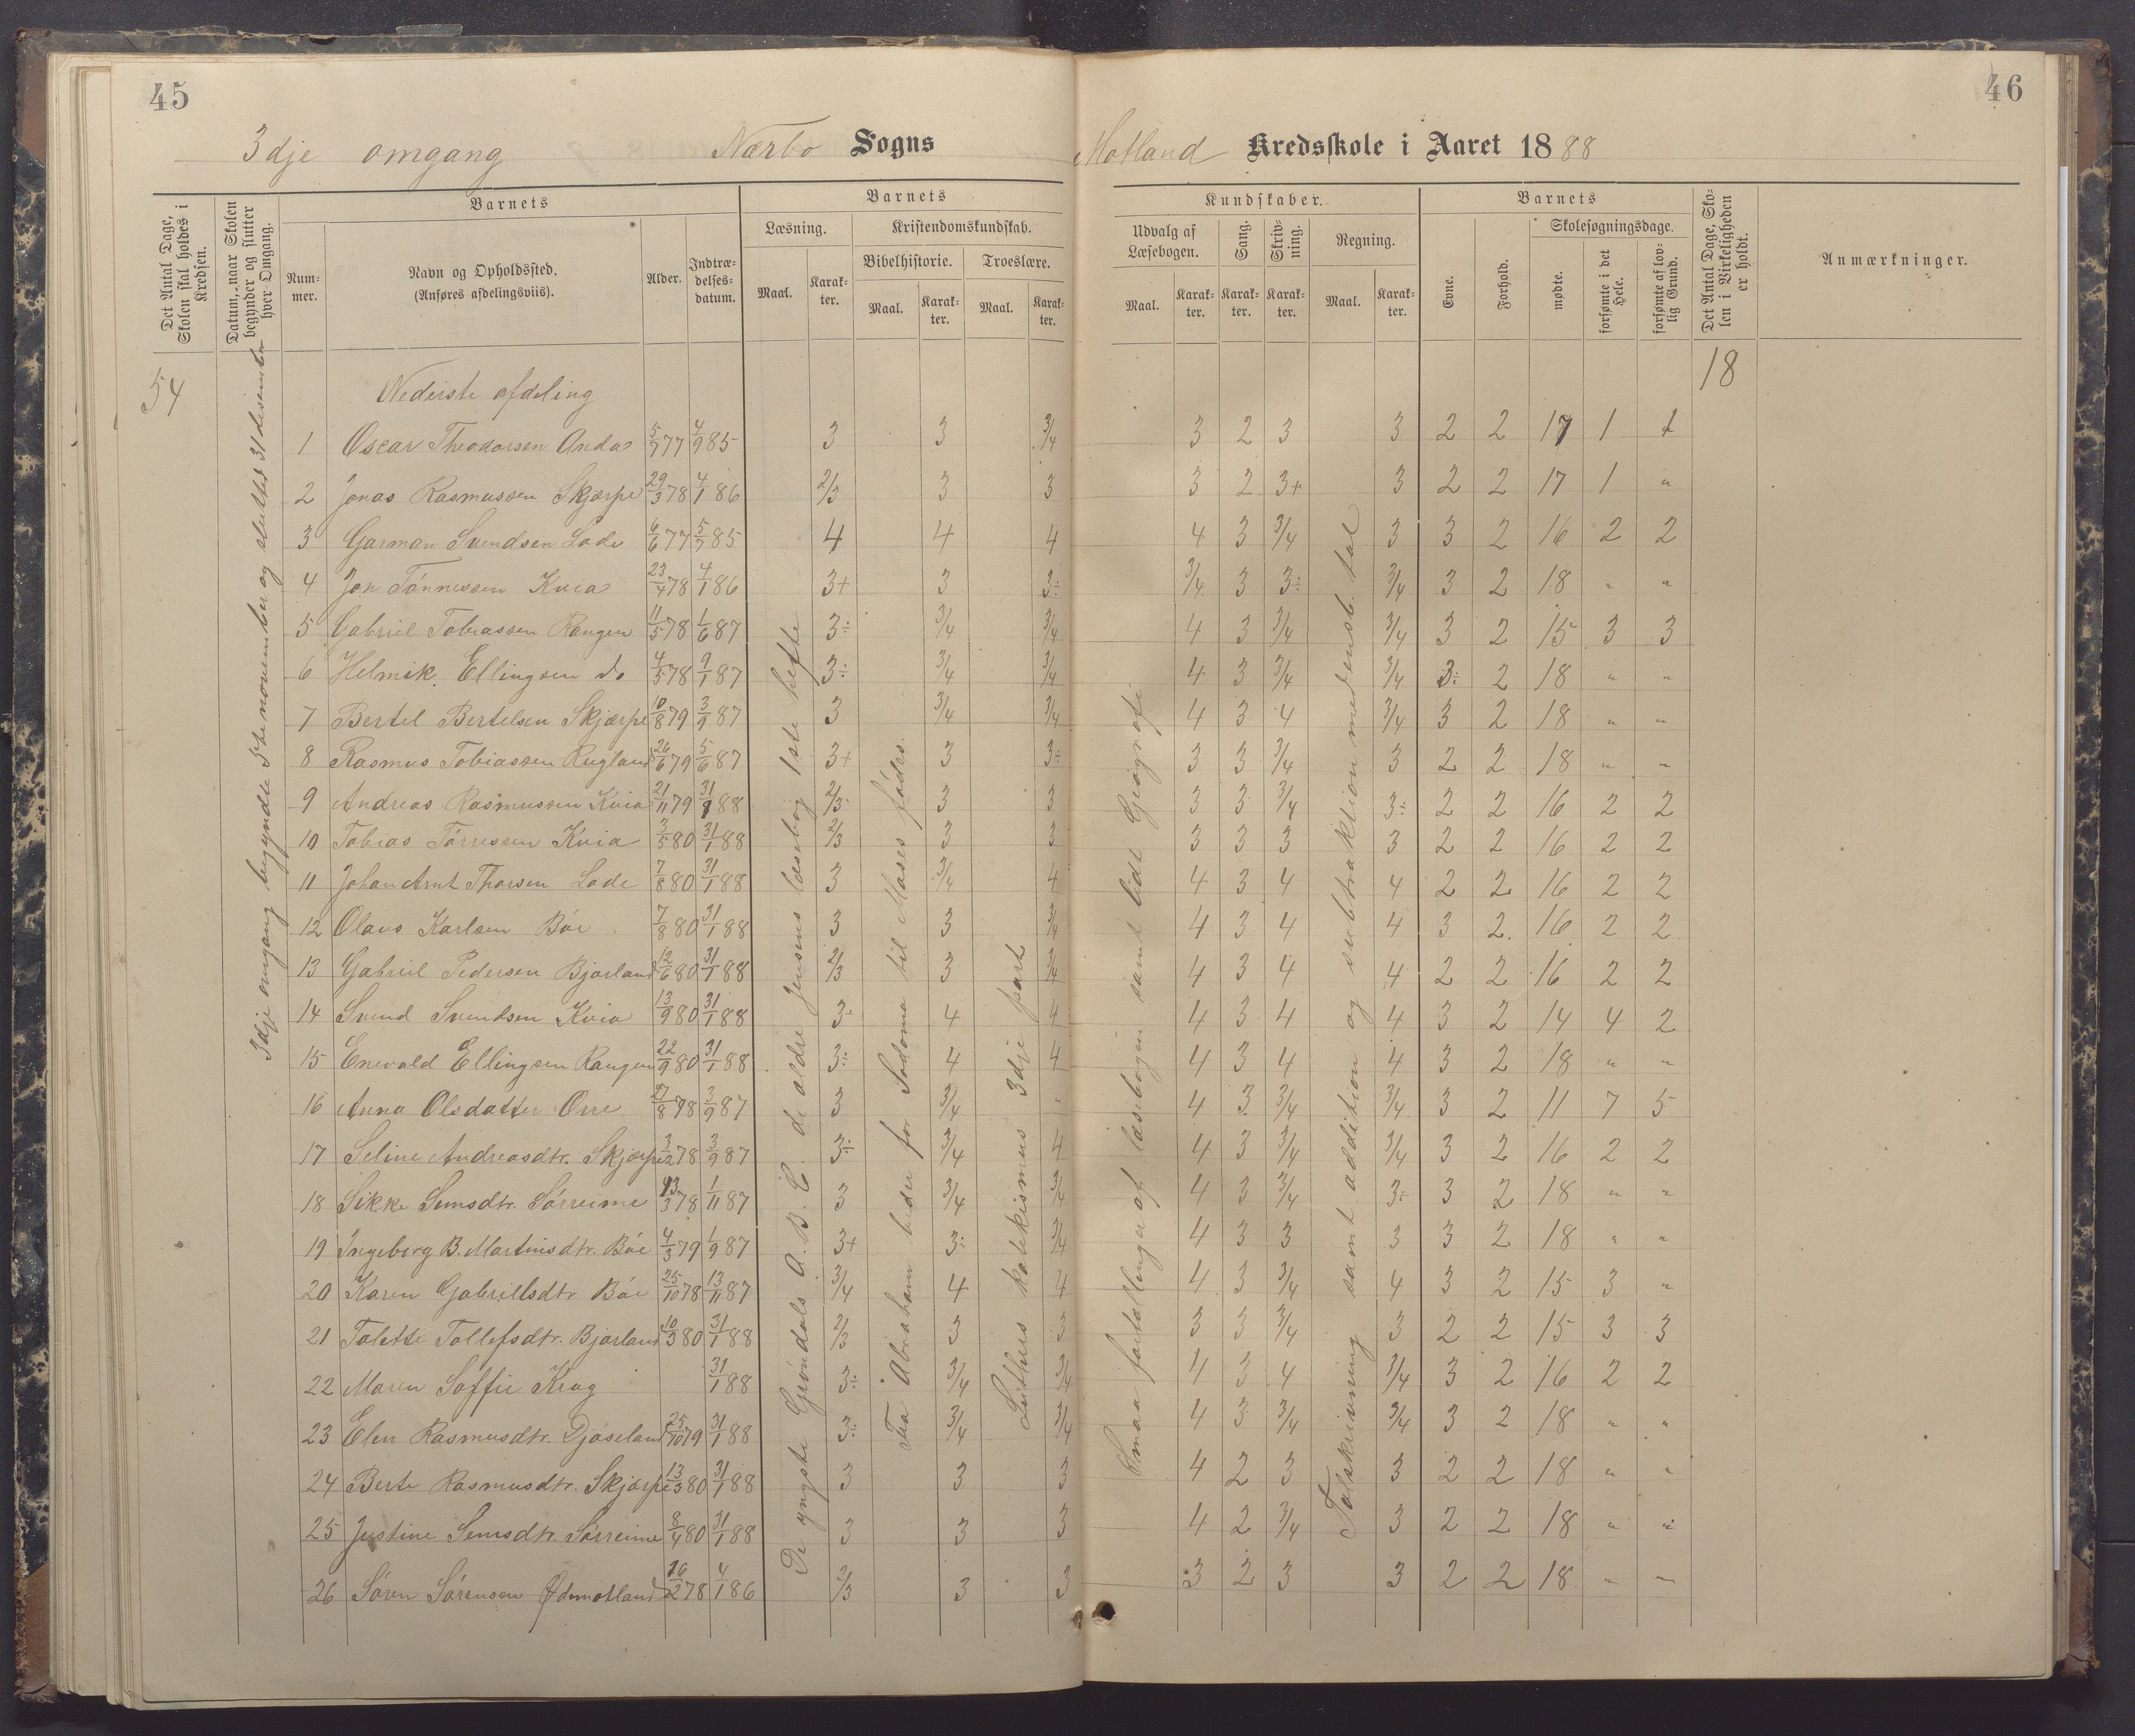 45
46
3dje omgang Nærbø Sogns
Motland Kredsskole i Aaret 1888
Det Antal Dage, Skolen skal holdes i Kredsen.
Datum, naar Skolen begynder og slutter hver Omgang.
Barnets
Num-mer.
Navn og Opholdssted. (Anføres afdelingsviis).
Alder.
Indtræ-delses-datum.
Barnets
Læsning.
Kristendomskundskab.
Bibelhistorie.
Troeslære.
Maal. Karak-ter. Maal. Karak-ter. Maal. Karak-ter.
Kundskaber.
Udvalg af Læsebogen.
Sang.
Skriv-ning.
Regning.
Maal. Karak-ter. Karak-ter. Karak-ter. Maal. Karak-ter.
Barnets
Evne.
Forhold.
Skolesøgningsdage.
mødte.
forsømte i det Hele.
forsømte af lov-lig Grund.
Det Antal Dage, Sko-len i Virkeligheden er holdt.
Anmærkninger.
54
18
3dje omgang begyndte 5te november og sluttet 31 desember
Nederste afdeling
De yngste Grøndals A.B.C. de ældre Jensens læsebog 1ste hefte
Fra Abraham beder for Sodoma til Moses fødes.
Luthers katekismus 3dje part
Smaa fortællinger af læsebogen samt lidt Gjeografi
Talskrivning samt addition og subtraktion med ensb. tal
1 Oscar Theodorsen Anda 5/7 77 4/9 85 3 3 3/4 3 2 3 3 2 2 17 1 1
2 Jonas Rasmussen Skjærpe 29/3 78 4/1 86 2/3 3 3 3 2 3+ 3 2 2 17 1 "
3 Garman Svendsen Lode 6/6 77 5/7 85 4 4 4 4 3 3/4 3 3 2 16 2 2
4 Jon Tønnessen Kvia 23/4 78 4/1 86 3+ 3 3÷ 3/4 3 3÷ 3/4 3 2 18 " "
5 Gabriel Tobiassen Rangen 11/5 78 1/6 87 3÷ 3/4 3/4 4 3 3/4 3/4 3 2 15 3 3
6 Helmik Ellingsen do 4/5 78 9/1 87 3÷ 3/4 3/4 4 3 3/4 3/4 3÷ 2 18 " "
7 Bertel Bertelsen Skjærpe 10/8 79 3/9 87 3 3/4 3/4 4 3 4 3/4 3 2 18 " "
8 Rasmus Tobiassen Rugland 26/6 79 5/6 87 3+ 3 3÷ 3 3 3/4 3 2 2 18 " "
9 Andreas Rasmussen Kvia 21/11 79 31/1 88 2/3 3 3 3 3 3/4 3÷ 2 2 16 2 2
10 Tobias Tørressen Kvia 3/5 80 31/1 88 2/3 3 3 3 3 3 3 2 2 16 2 2
11 Johan Arnt Thorsen Lode 7/8 80 31/1 88 3 3/4 4 4 3 4 4 2 2 16 2 2
12 Olaus Karlsen Bøe 7/8 80 31/1 88 3 3 3/4 4 3 4 4 3 2 16 2 2
13 Gabriel Pedersen Bjorland 12/6 80 31/1 88 2/3 3 3/4 4 3 4 4 2 2 16 2 2
14 Svend Svendsen Kvia 13/9 80 31/1 88 3÷ 4 4 4 3 4 4 3 2 14 4 2
15 Enevald Ellingsen Rangen 22/9 80 31/1 88 3÷ 4 4 4 3 4 4 3 2 18 " "
16 Anna Olsdatter Orre 27/8 78 3/9 87 3 3/4 - 4 3 3/4 3/4 3 2 11 7 5
17 Seline Andreasdtr. Skjærpe 3/2 78 3/9 87 3÷ 3/4 4 4 3 3/4 3/4 3 2 16 2 2
18 Sikke Semsdtr. Sørreime 13/3 78 1/11 87 3 3/4 3/4 4 3 3/4 3÷ 3 2 18 " "
19 Ingeborg B. Martinsdtr. Bøe 4/3 79 1/9 87 3+ 3÷ 3/4 4 3 3 3 3 2 18 " "
20 Karen Gabrielsdtr Bøe 25/10 78 13/11 87 3/4 4 4 4 3 3/4 4 3 2 15 3 "
21 Talette Tollefsdtr. Bjorland 10/3 80 31/1 88 2/3 3 3 3 3 3/4 3 2 2 15 3 3
22 Maren Soffie Krag 31/1 88 3÷ 3/4 3/4 4 3 4 3/4 3 2 16 2 2
23 Elen Rasmusdtr. Djøseland 25/10 79 31/1 88 3÷ 3/4 3/4 4 3 3/4 3/4 3 2 18 " "
24 Berte Rasmusdtr. Skjærpe 13/3 80 31/1 88 3 3 3 4 2 3 3 2 2 18 " "
25 Justine Semsdtr. Sørreime 8/4 80 31/1 88 3 3 3 4 2 3/4 3 2 2 18 " "
26 Søren Sørensen Ødemotland 16/2 78 4/1 86 2/3 3 3 3 2 3 3 2 2 18 " "